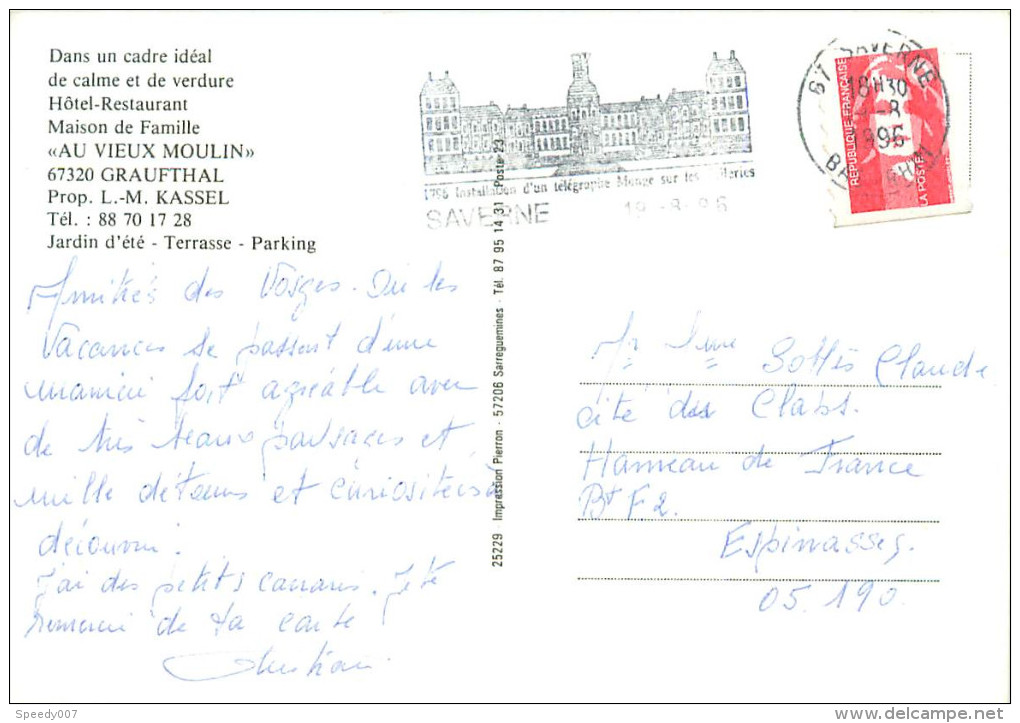 Dans un cadre idéal
de calme et de verdure
Hôtel-Restaurant
Maison de Famille
«AU VIEUX MOULIN»
67320 GRAUFTHAL
Prop. L.-M. KASSEL
Tél. : 88 70 17 28
Jardin d'été - Terrasse - Parking
Amitiés des Vosges. Où les
Vacances se passent d'une
manière fort agréable avec
de très beaux paysages et
mille détours et curiosités à
découvrir.
J'ai des petits canaris. Je te
remercie de ta carte
Christian
25229 - Impression Pierron - 57206 Sarreguemines - Tél. 87 95 14 31 Poste 23
1796 Installation d'un télégraphe Monge sur les
SAVERNE 19 -8- 96
67 SAVERNE
18H30
-8
1996
BAS RHIN
REPUBLIQUE FRANÇAISE
LA POSTE
Mr Mme Sottès Claude
Cité des Claps.
Hameau de France
Bt F2.
Espinasses.
05.190.
Speedy007
www.delcampe.net